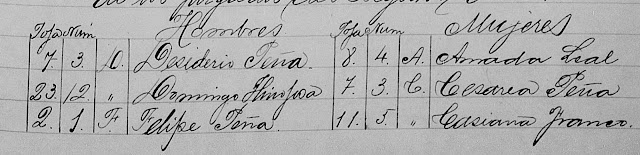 Hombres Mujeres
Foja Núm Foja Núm
7. 3. D. Desiderio Peña. 8. 4. A. Amada Leal
23 12. " Domingo Hinojosa 7. 3. C. Cesarea Peña
2. 1. F. Felipe Peña. 11. 5. " Casiana Franco.